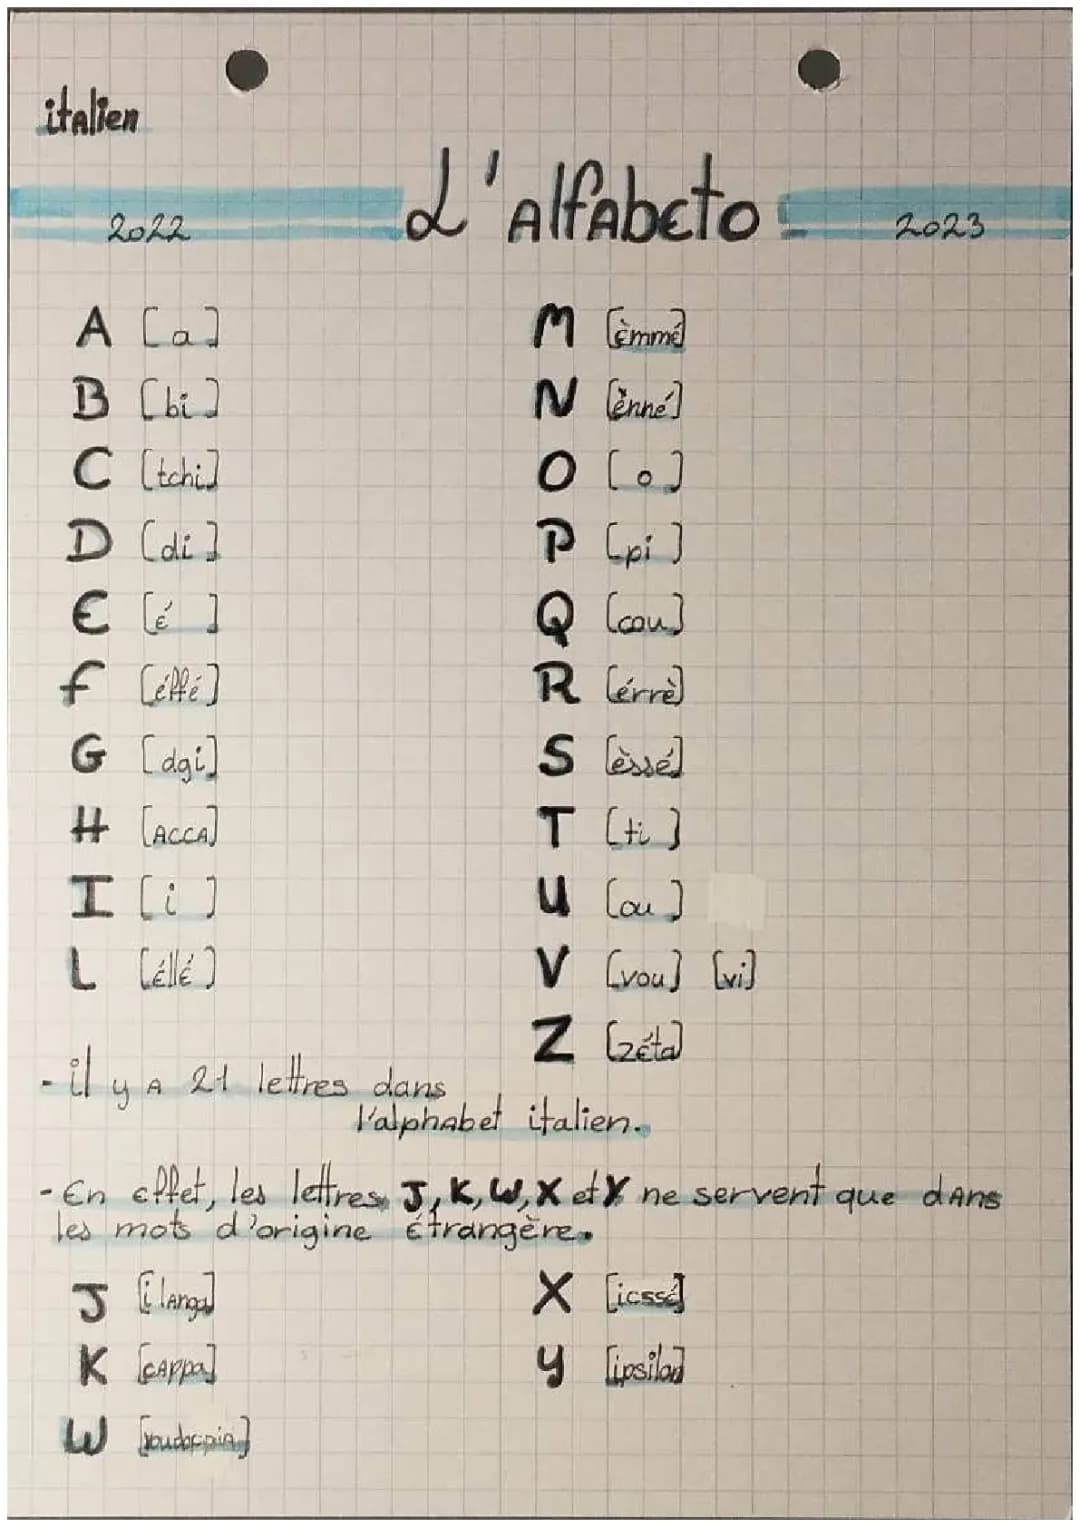 italien
L'alfabeto
2022 2023
A [a]
B [bi]
C [tchi]
D [di]
E [é]
F [éffé]
G [dgi]
H [ACCA]
I [i]
L [éllé]
M [èmmé]
N [ènné]
O [o]
P [pi]
Q [cou]
R [érrè]
S [èssé]
T [ti]
U [ou]
V [vou] [vi]
Z [zéta]
- il y A 21 lettres dans
l'alphabet italien.
- En effet, les lettres J, K, W, X et Y ne servent que dans
les mots d'origine étrangère.
J [i langa]
K [cappa]
W
X [icssé]
Y [ipsilon]